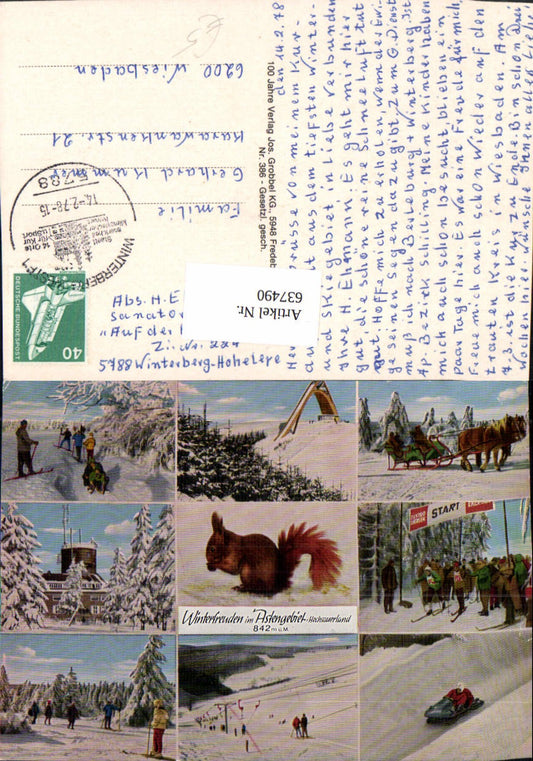 Herzliche Grüsse von meinem Kur-
aufenthalt aus dem tiefsten Winter-
und Skiegebiet in Liebe verbunden
Ihre H. Ehmann. Es geht mir hier
gut die schöne reine Schneeluft tut
gut. Hoffe mich zu erholen, wenn der Ewi-
ge seinen Segen dazu gibt. Zum G.Dienst
muß ich nach Berleburg + Winterberg ist
Ap. Bezirk Schilling. Meine Kinder haben
mich auch schon besucht, blieben ein
paar Tage hier. Es war eine Freude für mich,
Freue mich auch schon wieder auf den
trauten Kreis in Wiesbaden. Am
7.3. ist die Kur zu Ende. Bin schon drei
Wochen hier. wünsche Ihnen aller Liebe
den 14.2.78
100 Jahre Verlag Jos. Grobbel KG., 5948 Fredeb
Nr. 386 - Gesetzl. gesch.
Familie
Gerhard Kummer
Karawankenstr. 21
6200 Wiesbaden
€5
5788
14.-2.78-15
WINTERBERG
DEUTSCHE BUNDESPOST
40
Abs. H. E
Sanator
"Auf der
Zi. Nr. 224
5788 Winterberg-Hoheleye
Artikel Nr.
637490
START
Winterfreuden im Astengebiet - Hochsauerland
842 m ü. M.